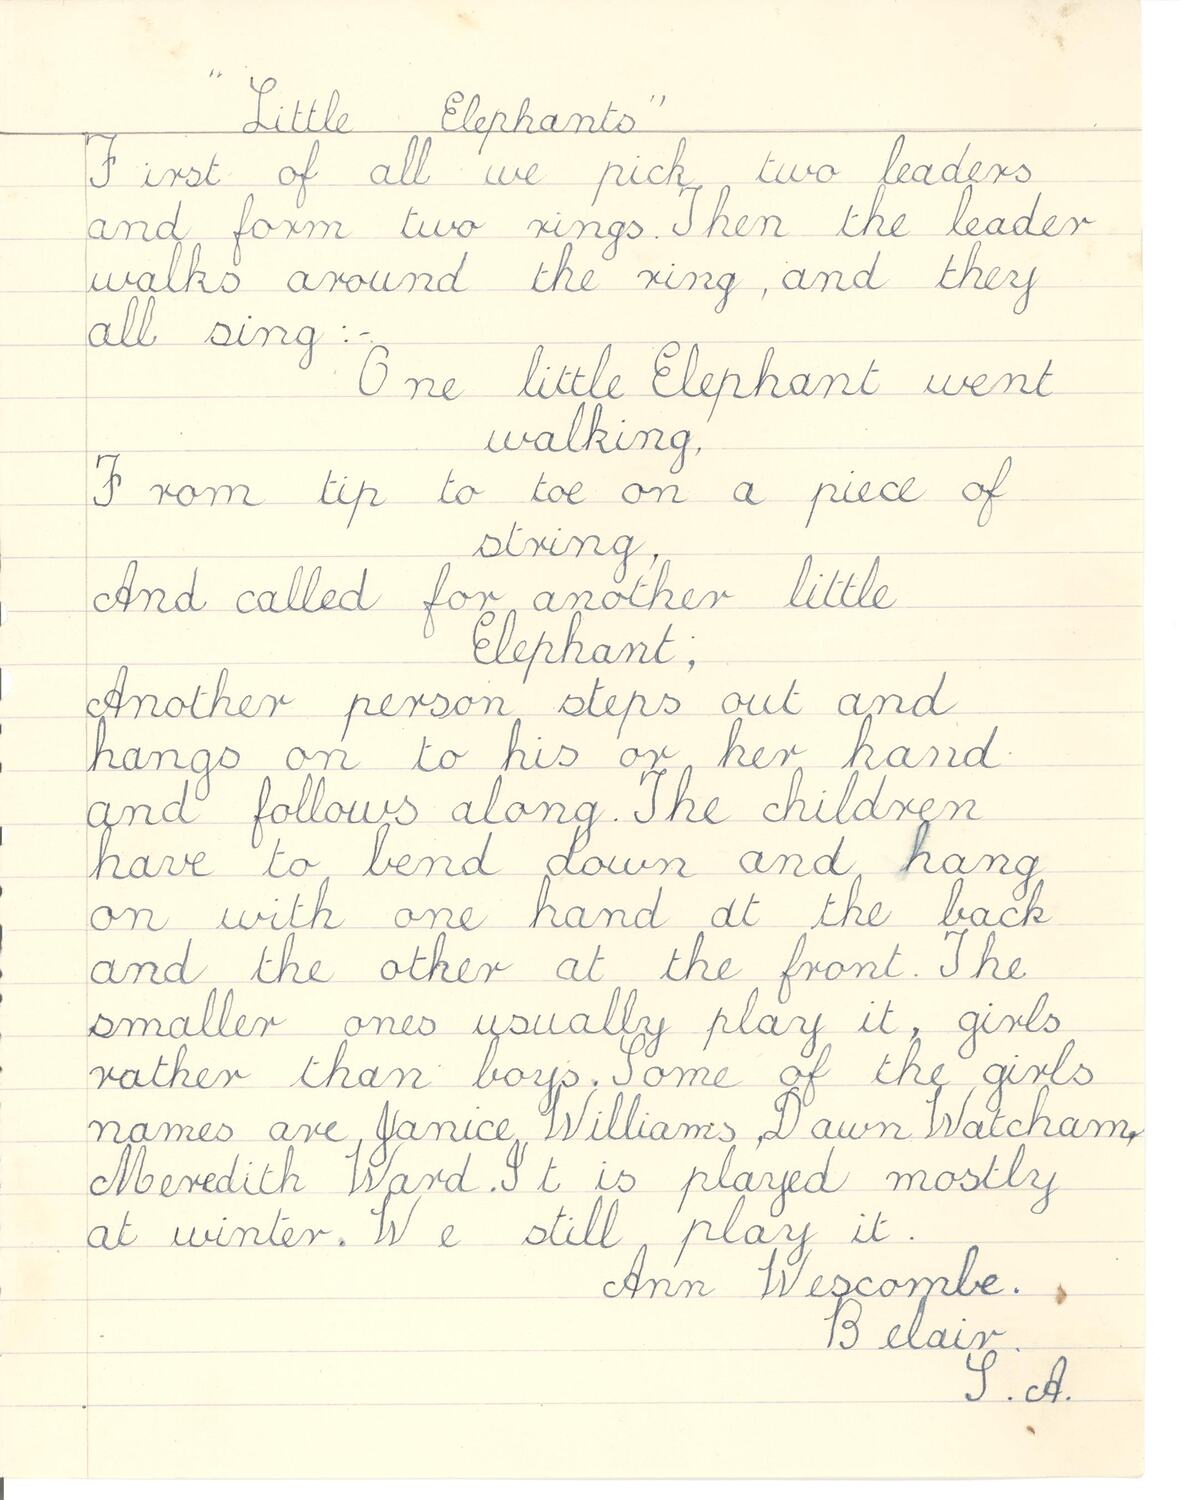 "Little Elephants"
First of all we pick two leaders
and form two rings. Then the leader
walks around the ring, and they
all sing:-
One little Elephant went
walking,
From tip to toe on a piece of
string,
And called for another little
Elephant;
Another person steps out and
hangs on to his or her hand
and follows along. The children
have to bend down and hang
on with one hand at the back
and the other at the front. The
smaller ones usually play it, girls
rather than boys. Some of the girls
names are, Janice Williams, Dawn Watcham,
Meredith Ward. It is played mostly
at winter. We still play it.
Ann Wescombe.
Belair.
S.A.